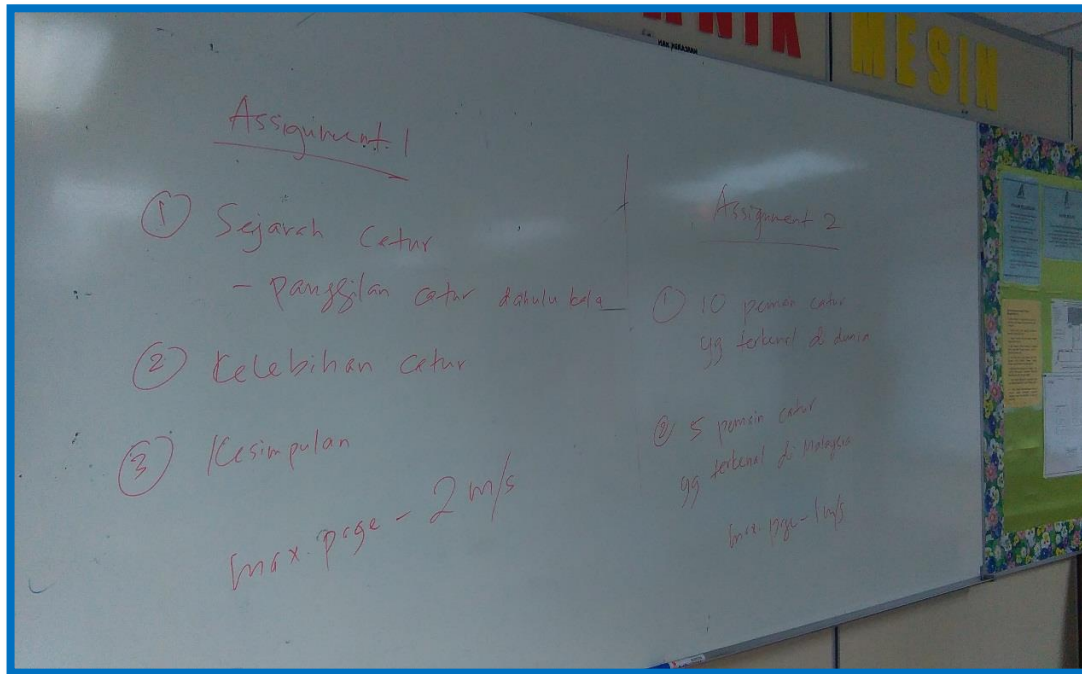 MESIN
Assignment 1
① Sejarah Catur
- panggilan catur dahulu kala
② Kelebihan catur
③ Kesimpulan
max. page - 2 m/s
Assignment 2
① 10 pemain catur
yg terkenal di dunia
② 5 pemain catur
yg terkenal di Malaysia
max. page - 1 m/s